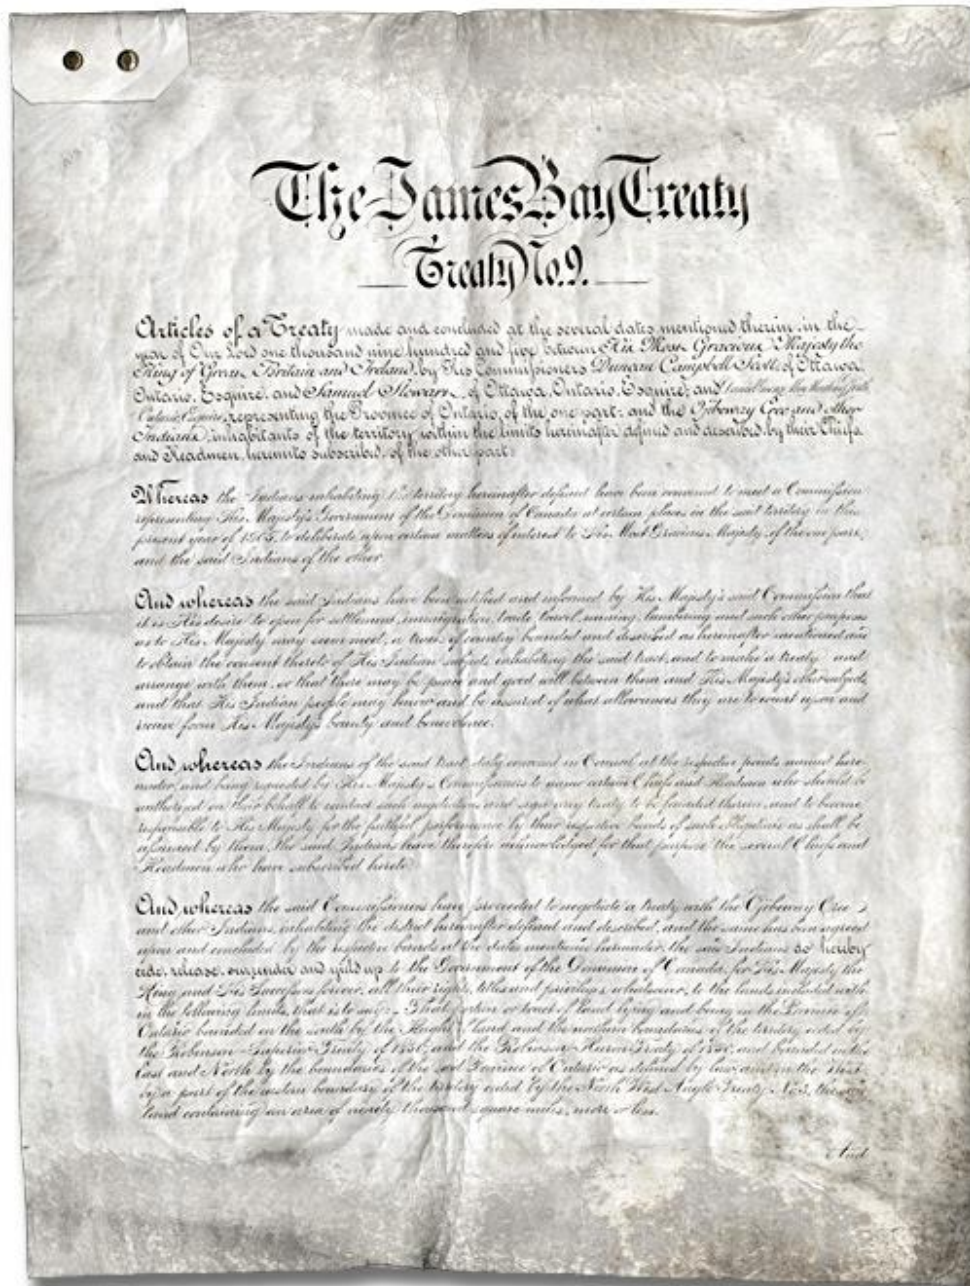 The James Bay Treaty
Treaty No. 9.
Articles of a Treaty made and concluded at the several dates mentioned therein, in the
year of Our Lord one thousand nine hundred and five between His Most Gracious Majesty the
King of Great Britain and Ireland, by His Commissioners Duncan Campbell Scott, of Ottawa,
Ontario, Esquire, and Samuel Stewart, of Ottawa, Ontario, Esquire; and
Ontario, Esquire, representing the Province of Ontario, of the one part; and the Ojibeway Cree and other
Indians, inhabitants of the territory within the limits hereinafter defined and described, by their Chiefs,
and Headmen, hereunto subscribed, of the other part:
Whereas the Indians inhabiting the territory hereinafter defined have been convened to meet a Commission
representing His Majesty's Government of the Dominion of Canada at certain places in the said territory in this
present year of 1905, to deliberate upon certain matters of interest to His Most Gracious Majesty, of the one part,
and the said Indians of the other
And whereas the said Indians have been notified and informed by His Majesty's said Commission that
it is His desire to open for settlement, immigration, trade, travel, mining, lumbering and such other purposes
as to His Majesty may seem meet, a tract of country bounded and described as hereinafter mentioned and
to obtain the consent thereto of His Indian subjects inhabiting the said tract, and to make a treaty and
arrange with them, so that there may be peace and good will between them and His Majesty's other subjects,
and that His Indian people may know and be assured of what allowances they are to count upon and
receive from His Majesty's bounty and benevolence.
And whereas the Indians of the said tract, duly convened in Council at the respective points named here-
under, and being requested by His Majesty's Commissioners to name certain Chiefs and Headmen who should be
authorized on their behalf to conduct such negotiations and sign any treaty to be founded thereon, and to become
responsible to His Majesty for the faithful performance by their respective bands of such obligations as shall be
assumed by them, the said Indians have therefore acknowledged for that purpose the several Chiefs and
Headmen who have subscribed hereto.
And whereas the said Commissioners have proceeded to negotiate a treaty with the Ojibeway Cree
and other Indians, inhabiting the district hereinafter defined and described, and the same has been agreed
upon and concluded by the respective bands at the dates mentioned hereunder, the said Indians do hereby
cede, release, surrender and yield up to the Government of the Dominion of Canada, for His Majesty the
King and His Successors forever, all their rights, titles and privileges whatsoever, to the lands included with-
in the following limits, that is to say:- That portion or tract of land lying and being in the Province of
Ontario bounded on the south by the Height of Land and the northern boundaries of the territory ceded by
the Robinson-Superior Treaty of 1850, and the Robinson-Huron Treaty of 1850, and bounded on the
East and North by the boundaries of the said Province of Ontario as defined by law, and on the West
by a part of the eastern boundary of the territory ceded by the North West Angle Treaty No. 3, the said
land containing an area of ninety thousand square miles, more or less.
And